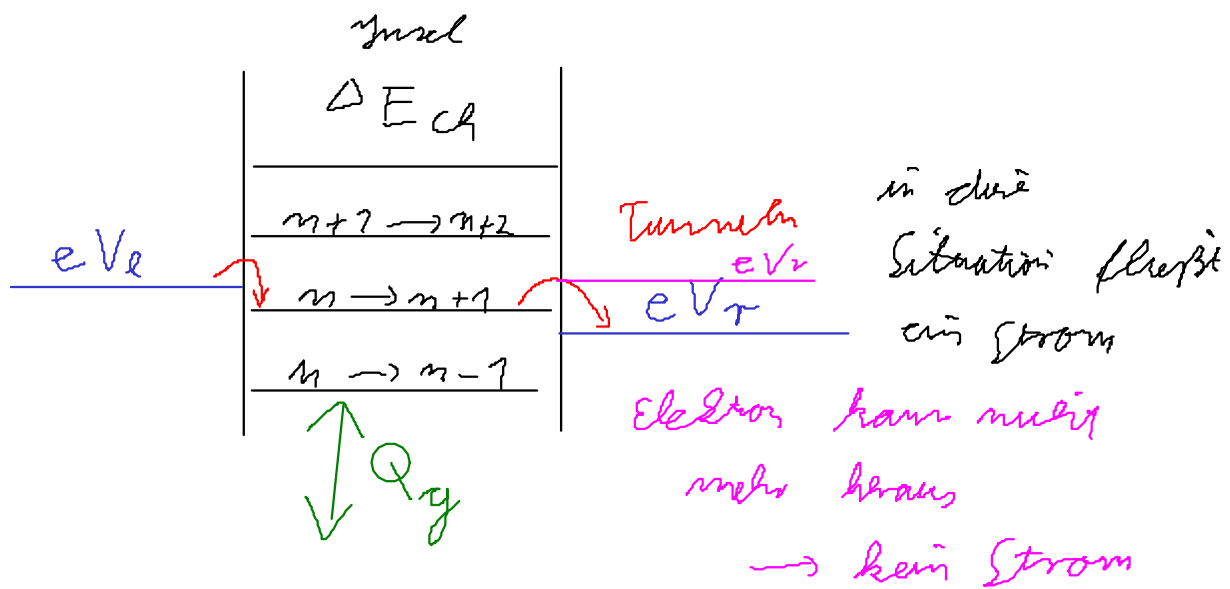 Insel
Δ E ch
n+1 → n+2
eVl
n → n+1
n → n-1
Qg
Tunneln
eVr
eVr
in diese
Situation fließt
ein Strom
Elektron kann nicht
mehr heraus
→ kein Strom